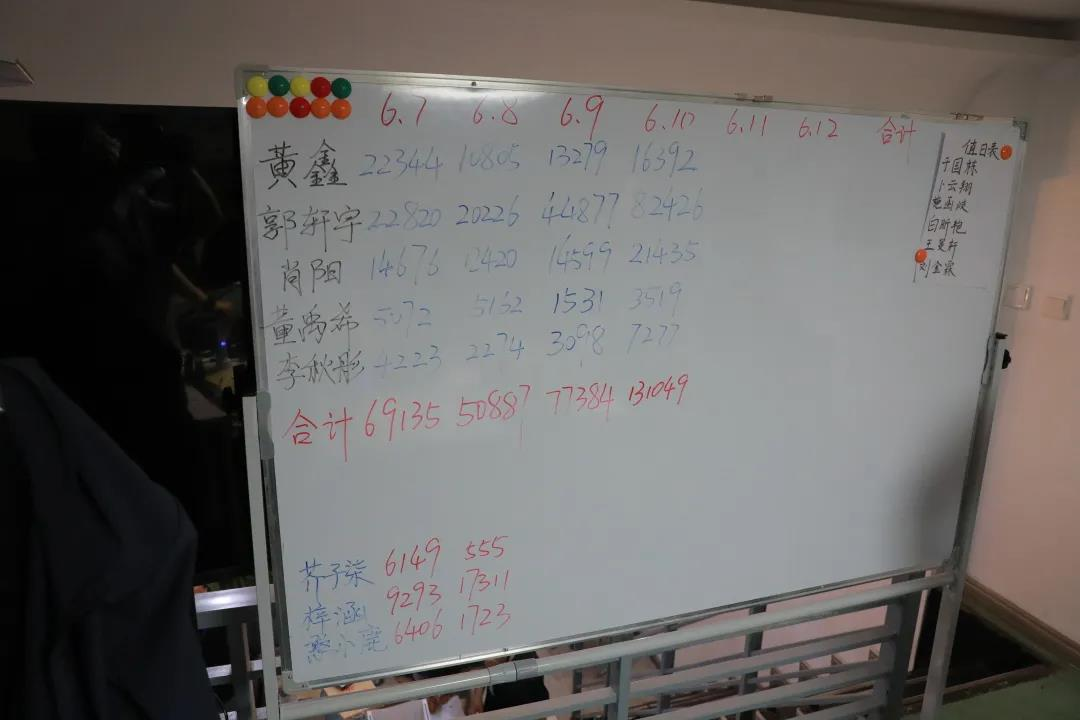 6.7 6.8 6.9 6.10 6.11 6.12 合计
黄鑫 22344 10805 13279 16392
郭轩宇 22820 20226 44877 82426
肖阳 14676 12420 14599 21435
董禹希 5072 5162 1531 3519
李秋彤 4223 2274 3098 7277
合计 69135 50887 77384 131049
芥子柒 6149 555
梓涵 9293 17311
憨小鹿 6406 1723
值日表
于国栋
卜云翔
白昕艳
王昊轩
刘金霖